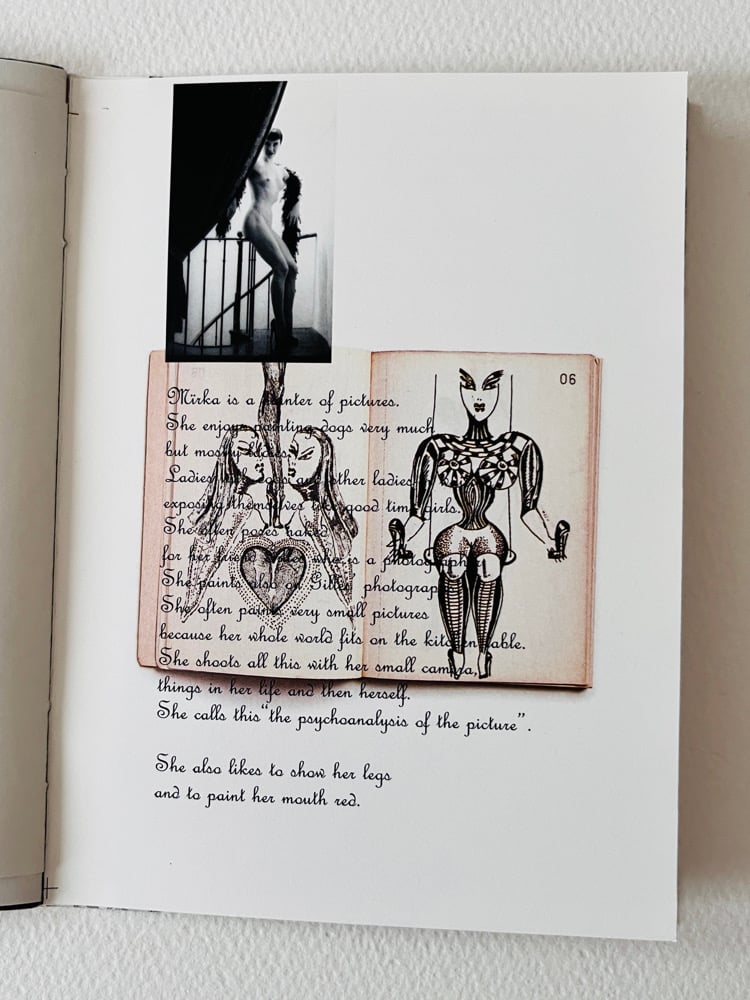 06
Mïrka is a painter of pictures.
She enjoys painting dogs very much
but mostly ladies.
Ladies with dogs and other ladies
exposing themselves like good time girls.
She often poses naked
for her friend Gilles who is a photographer.
She paints also on Gilles' photograp
She often paints very small pictures
because her whole world fits on the kitchen table.
She shoots all this with her small camera,
things in her life and then herself.
She calls this “the psychoanalysis of the picture”.
She also likes to show her legs
and to paint her mouth red.